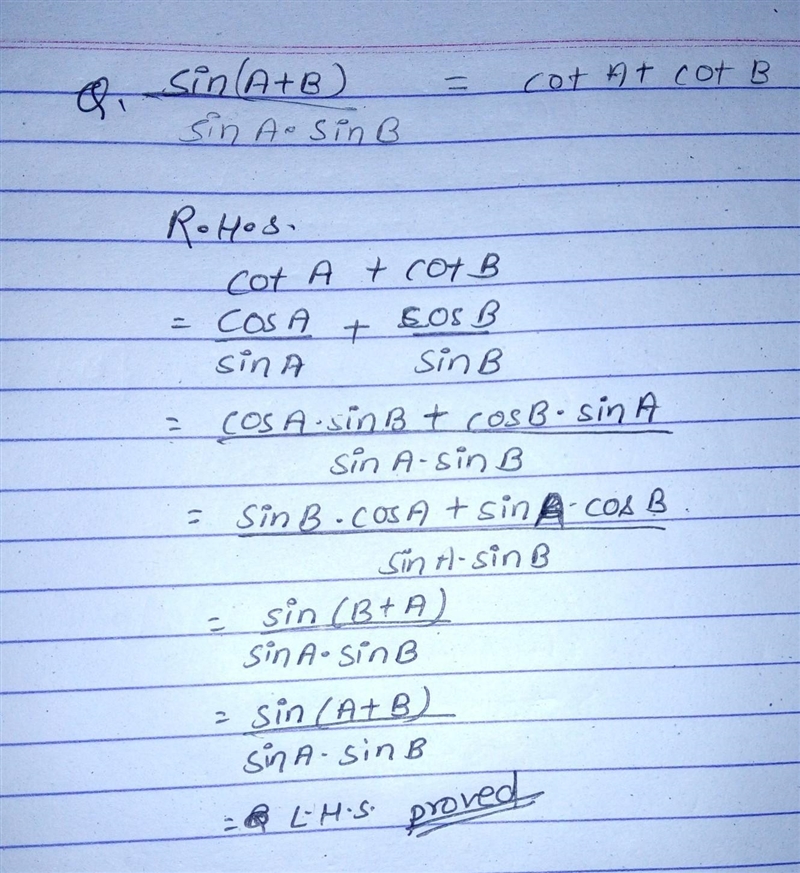 Q. sin(A+B) = cot A + cot B
sin A • sin B
R.H.S.
cot A + cot B
= cos A + cos B
sin A sin B
= cos A · sin B + cos B · sin A
sin A · sin B
= sin B · cos A + sin A · cos B
sin A · sin B
= sin (B + A)
sin A • sin B
= sin (A + B)
sin A · sin B
= L.H.S. proved